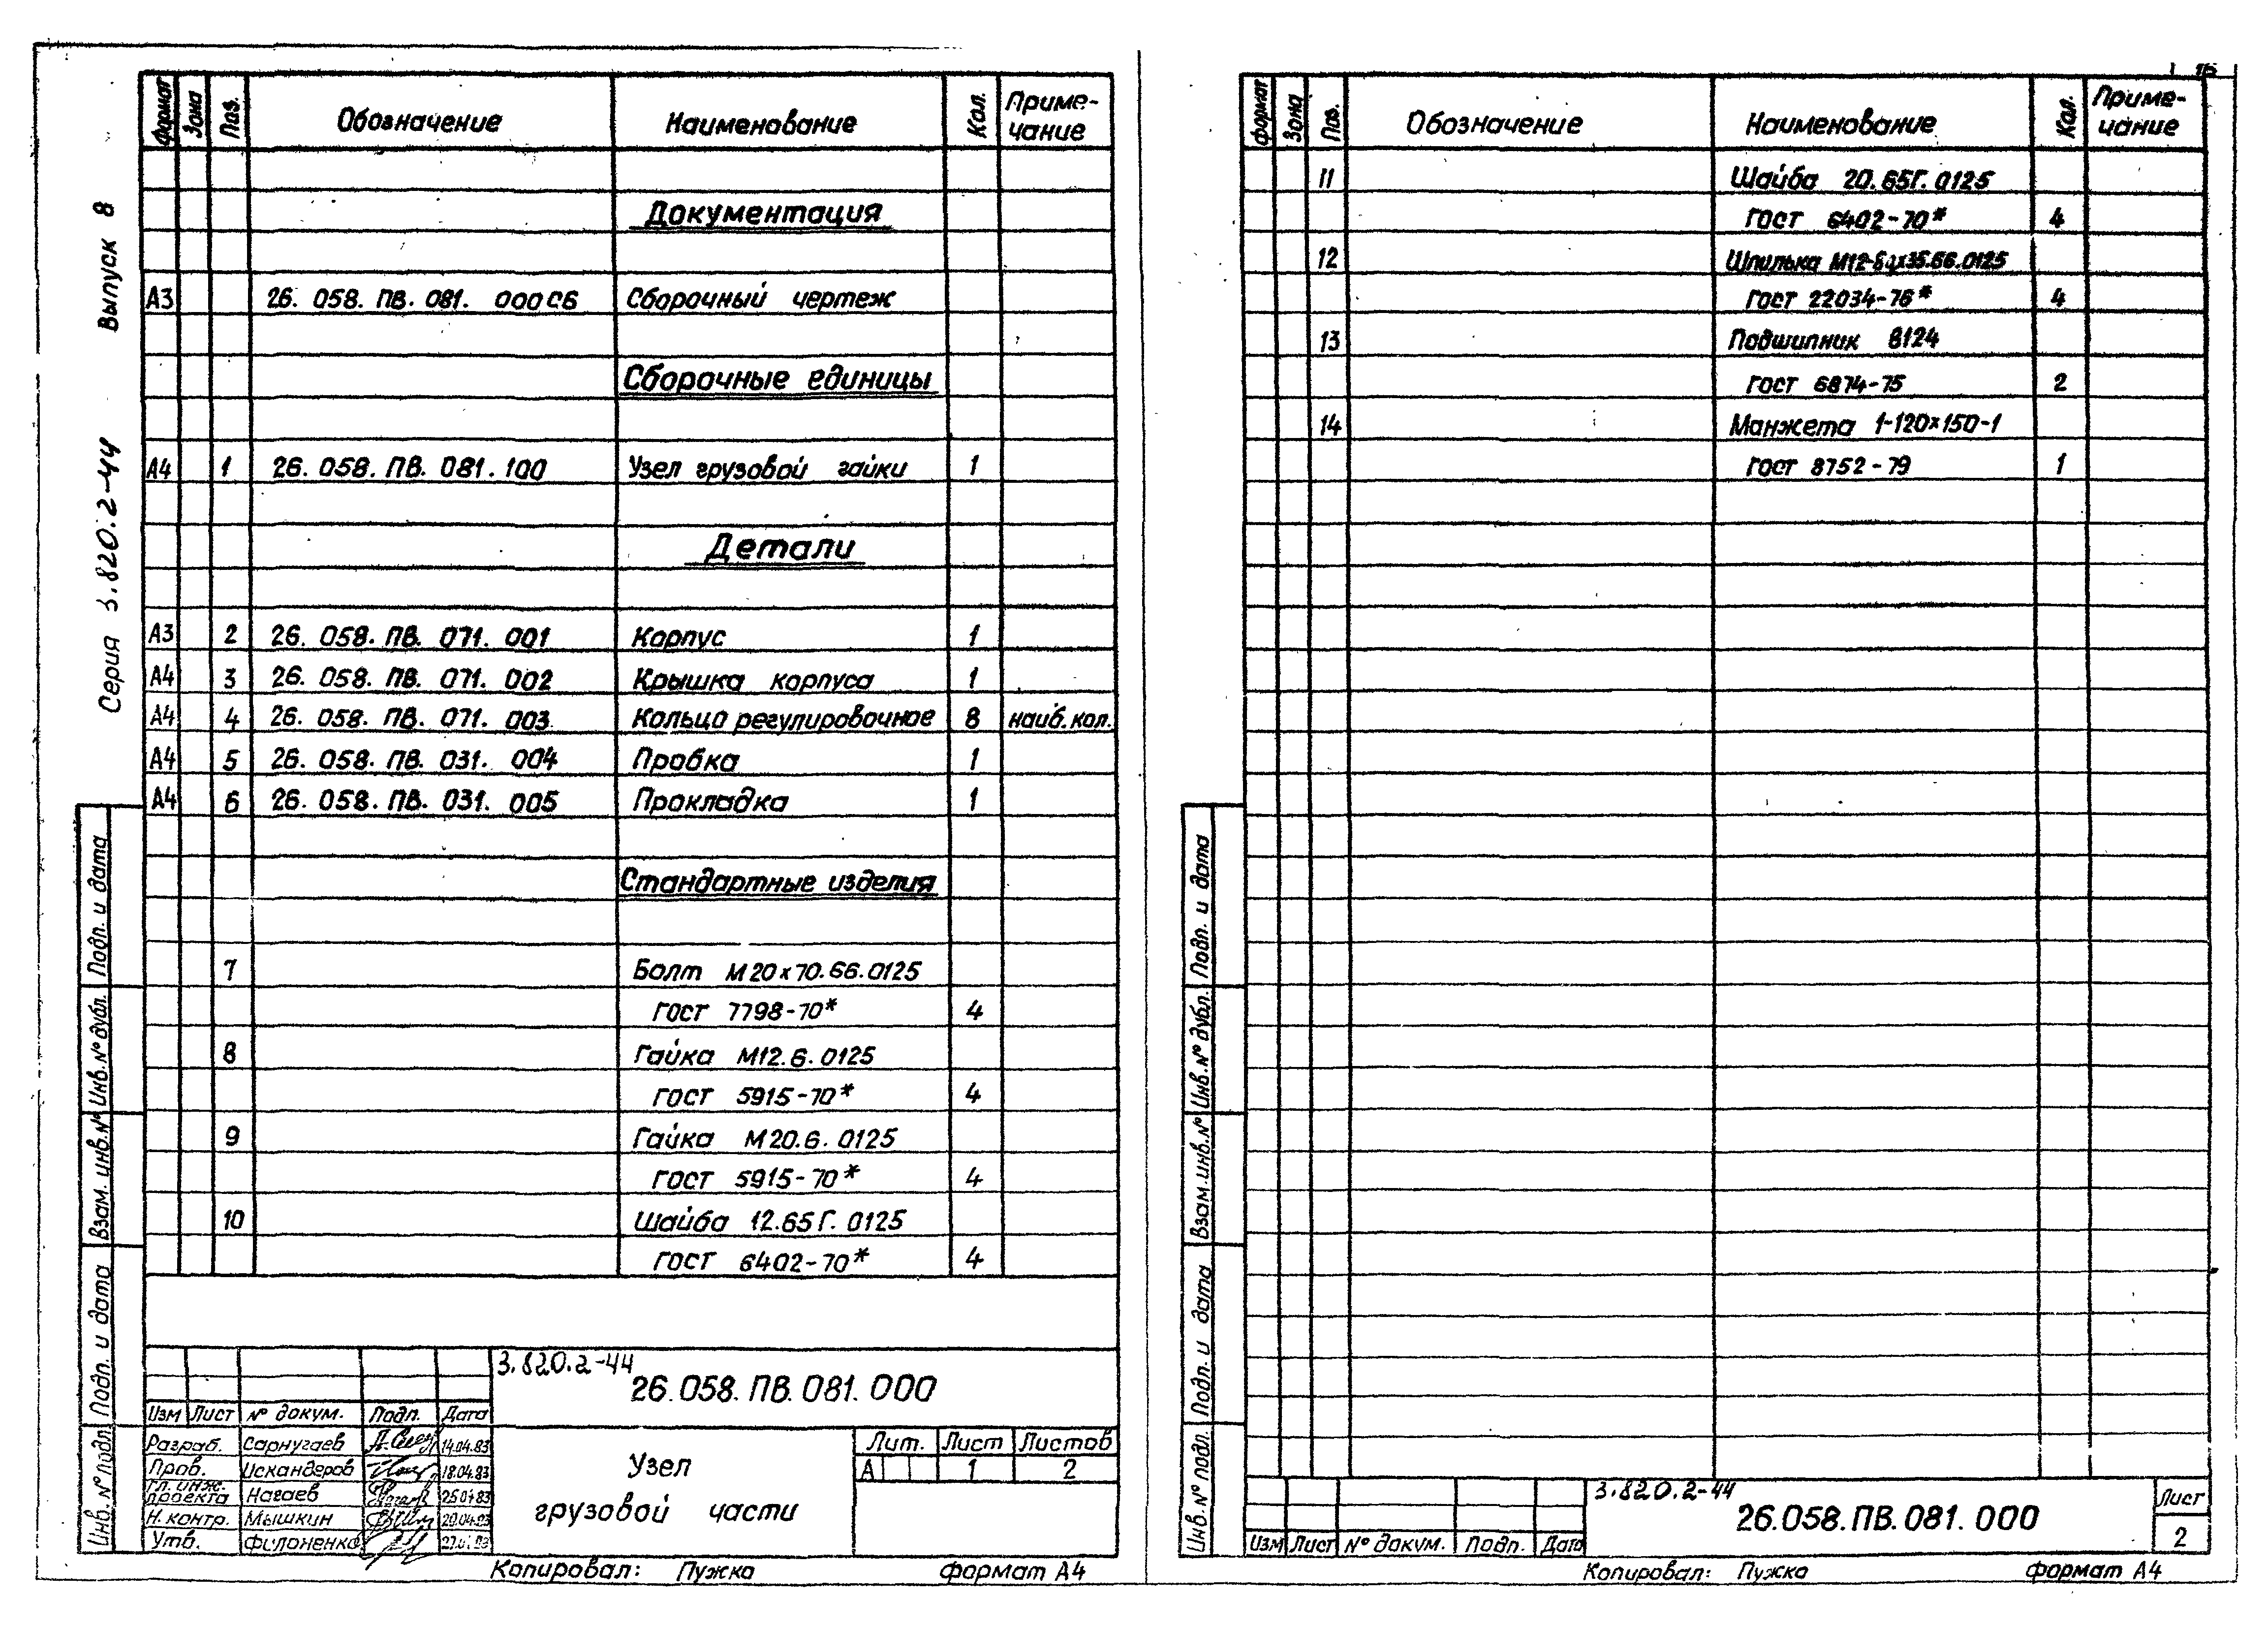 Серия 3.820.2-44 Выпуск 8
Формат Зона Поз. Обозначение Наименование Кол. Приме-
чание
Документация
А3 26. 058. ПВ. 081. 000СБ Сборочный чертеж
Сборочные единицы
А4 1 26. 058. ПВ. 081. 100 Узел грузовой гайки 1
Детали
А3 2 26. 058. ПВ. 071. 001 Корпус 1
А4 3 26. 058. ПВ. 071. 002 Крышка корпуса 1
А4 4 26. 058. ПВ. 071. 003 Кольцо регулировочное 8 наиб. кол.
А4 5 26. 058. ПВ. 031. 004 Пробка 1
А4 6 26. 058. ПВ. 031. 005 Прокладка 1
Стандартные изделия
7 Болт М20х70.66.0125
ГОСТ 7798-70* 4
8 Гайка М12.6.0125
ГОСТ 5915-70* 4
9 Гайка М20.6.0125
ГОСТ 5915-70* 4
10 Шайба 12.65Г.0125
ГОСТ 6402-70* 4
Инв. № подл. Подп. и дата Взам. инв. № Инв. № дубл. Подп. и дата
3.820.2-44
26.058.ПВ.081.000
Изм Лист № докум. Подп. Дата
Разраб. Сарнугаев 14.04.83
Пров. Искандеров 18.04.83
Гл. инж.
проекта Нагаев
Н. контр. Мышкин
Утв. Филоненко
Узел
грузовой части
Лит. Лист Листов
А 1 2
Копировал: Пужко Формат А4
Формат Зона Поз. Обозначение Наименование Кол. Приме-
чание
11 Шайба 20.65Г.0125
ГОСТ 6402-70* 4
12 Шпилька
ГОСТ 22034-76* 4
13 Подшипник 8124
ГОСТ 6874-75 2
14 Манжета 1-120х150-1
ГОСТ 8752-79 1
Инв. № подл. Подп. и дата Взам. инв. № Инв. № дубл. Подп. и дата
3.820.2-44
26.058.ПВ.081.000
Изм Лист № докум. Подп. Дата
Лист
2
Копировал: Пужко Формат А4